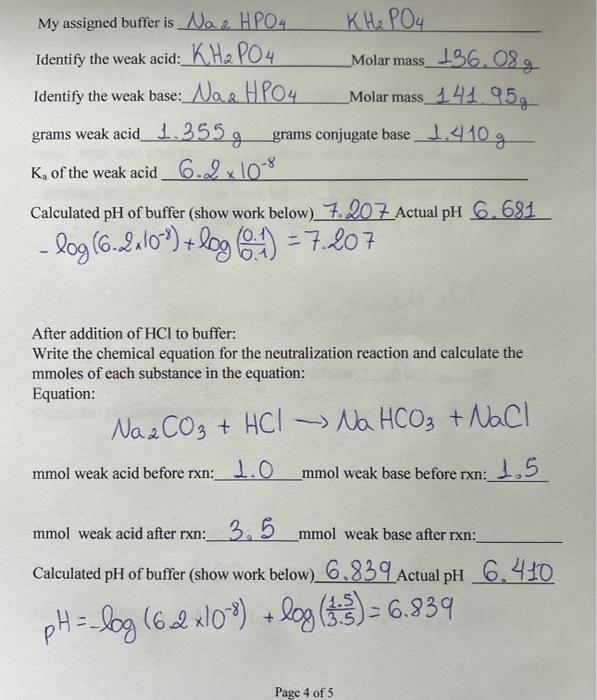 My assigned buffer is Na2HPO4 KH2PO4
Identify the weak acid: KH2PO4 Molar mass 136.08g
Identify the weak base: Na2HPO4 Molar mass 141.95g
grams weak acid 1.355 g grams conjugate base 1.410 g
Ka of the weak acid 6.2 x 10^-8
Calculated pH of buffer (show work below) 7.207 Actual pH 6.681
- log (6.2x10^-8) + log (0.1/0.1) = 7.207
After addition of HCl to buffer:
Write the chemical equation for the neutralization reaction and calculate the
mmoles of each substance in the equation:
Equation:
Na2CO3 + HCl → NaHCO3 + NaCl
mmol weak acid before rxn: 1.0 mmol weak base before rxn: 1.5
mmol weak acid after rxn: 3.5 mmol weak base after rxn:
Calculated pH of buffer (show work below) 6.839 Actual pH 6.410
pH = -log (6.2 x10^-8) + log (1.5/3.5) = 6.839
Page 4 of 5